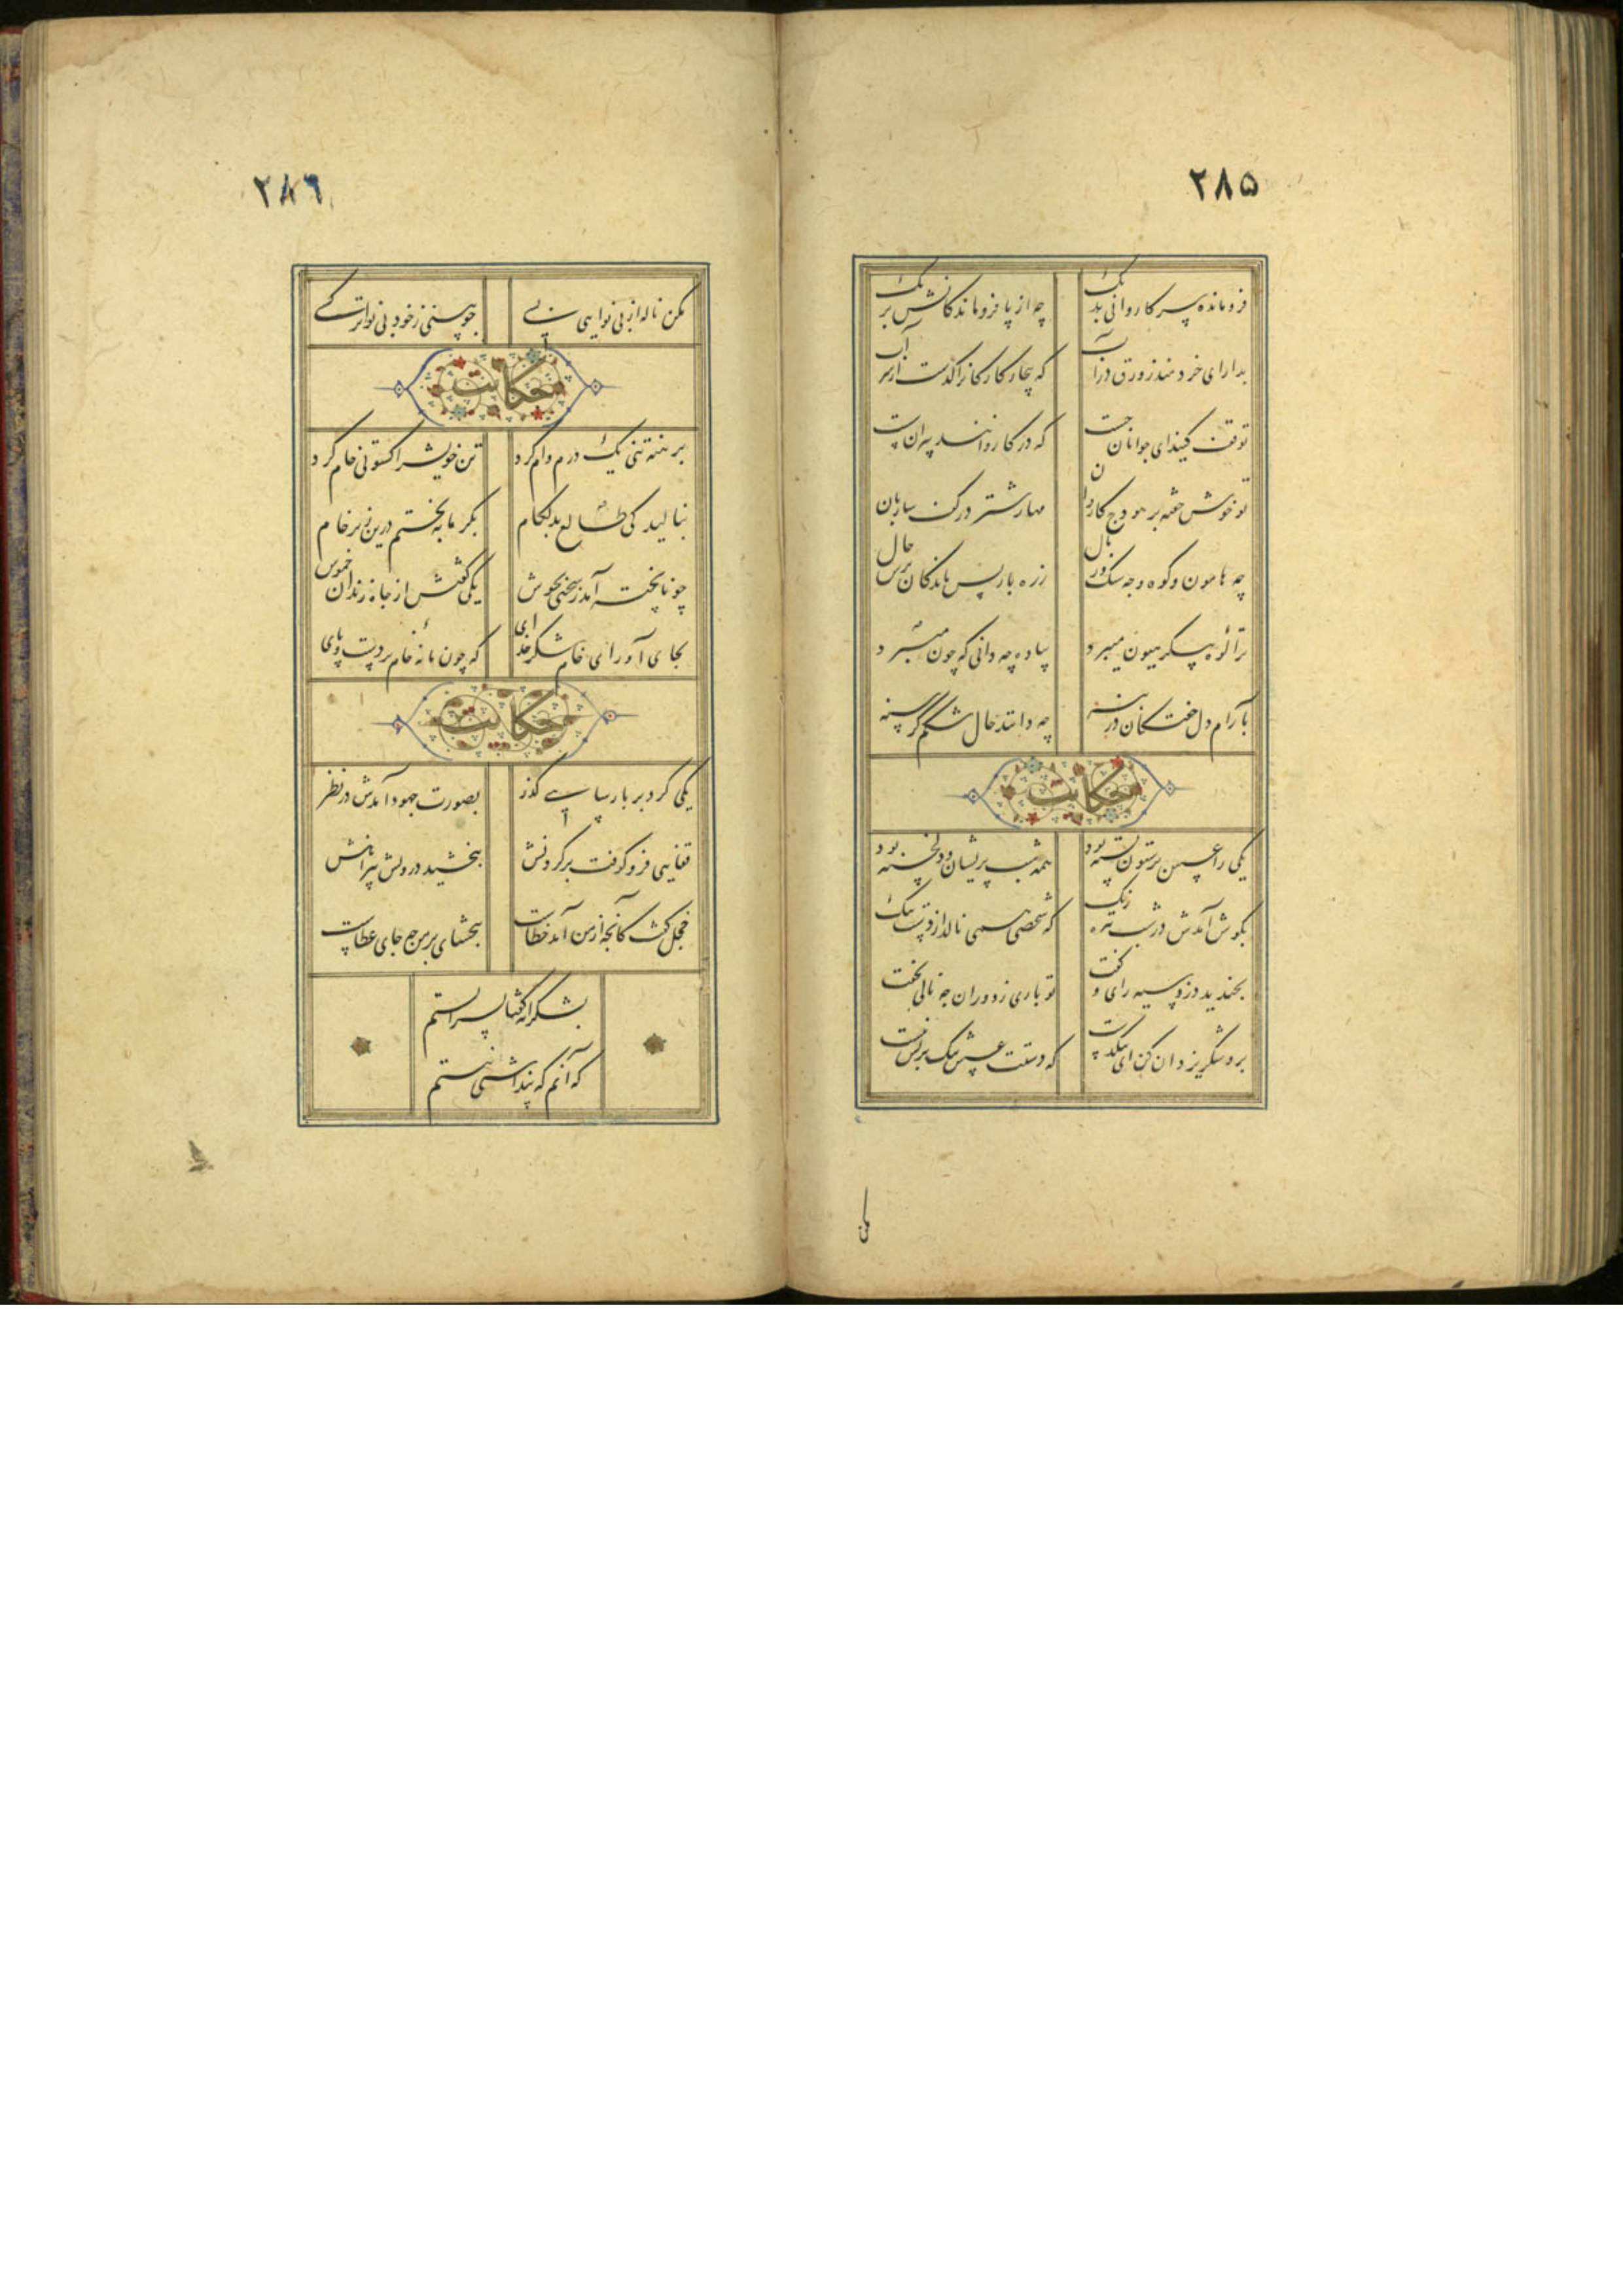 ۲۸۵
فرومانده سر کاروانی بدیک چه از پا فروماندکانش بریک
بدار ای خردمند زورق در آب که بیچارکانرا کذشت از سر آب
توقف کنید ای جوانان چست که در کاروانند پیران سست
تو خوش خفته بر هودج کاروان مهار شتر در کف ساربان
چه هامون و کوه و چه سنک و رمال ز ره باز پس ماندکان پرس حال
ترا کوه پیکر هیون میبرد پیاده چه دانی که چون
بآرام دل خفتکان در بنه چه دانند حال شکم کرسنه
حکایت
یکی را عسس بر ستون بسته بود همه شب پریشان و دلخسته بود
بکوش آمدش در شب تیره رنک که شخصی همی نالد از دست تنک
بخندید دزد سیه رای و کفت تو باری ز دوران چه نالی بخفت
برو شکر یزدان کن ای تنکدست که دستت عسس تنک بر هم نبست
مکن
۲۸۶
مکن ناله از بی نوایی بسی چو بینی ز خود بی نواتر کسی
حکایت
برهنه تنی یک درم وام کرد تن خویش را کسوتی خام کرد
بنالید کی طالع بدلکام بکرما بپختم درین زیر خام
چو ناپخته آمد ز سختی بجوش یکی کفتش از چاه زندان خموش
بجای آور ای خام شکر خدای که چون ما نهٔ خام بر دست و پای
حکایت
یکی کرد بر پارسایی کذر بصورت جهود آمدش در نظر
قفایی فرو کوفت بر کردنش ببخشید درویش پیراهنش
خجل کفت کانچه از من آمد خطاست ببخشای بر من چه جای عطاست
بشکرانه کفتا بسر ایستم
که آنم که پنداشتی نیستم